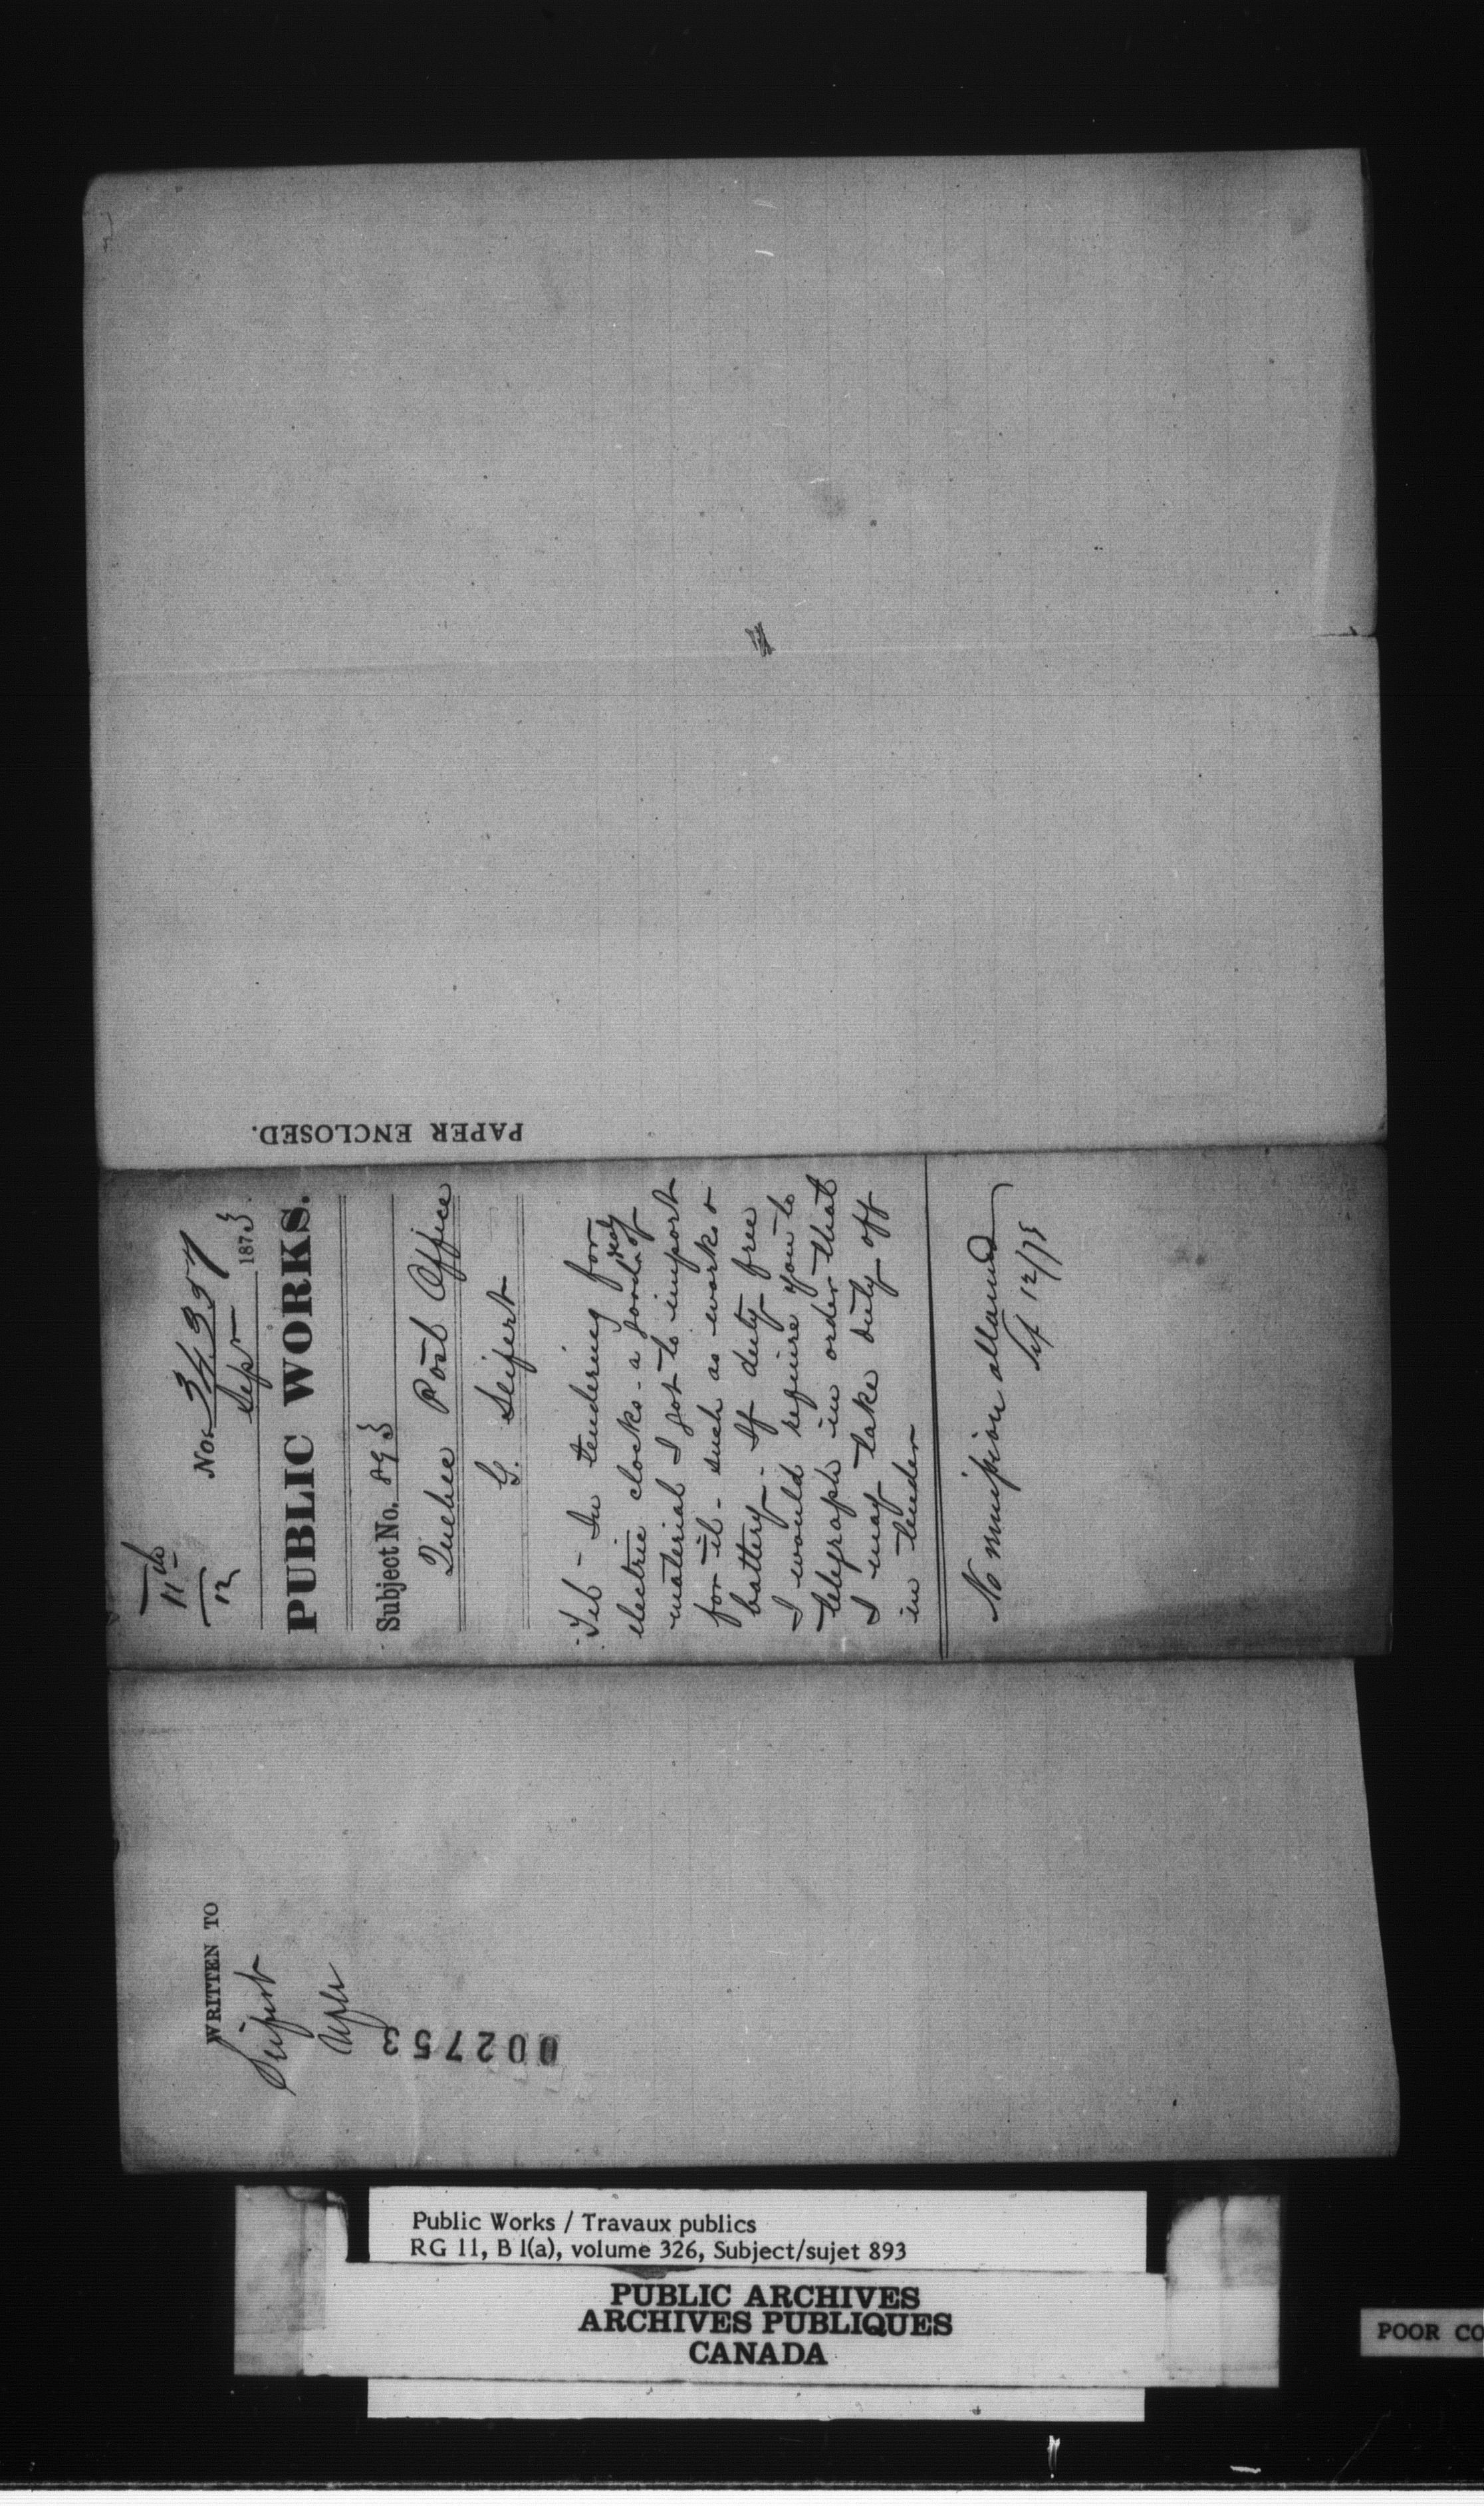 PAPER ENCLOSED.
11th
12
No. 34357
Sepr 1873
PUBLIC WORKS.
Subject No. 893
Quebec Post Office
G. Seifert
Tel - In tendering for
electric clocks - a good dealy of
material I got to import
for it - such as works &
battery - If duty free
I would require you to
telegraph in order that
I may take duty off
in tender
No remission allowed
12/73
WRITTEN TO
Seifert
002753
Public Works / Travaux publics
RG 11, B1(a), volume 326, Subject/sujet 893
PUBLIC ARCHIVES
ARCHIVES PUBLIQUES
CANADA
POOR CO